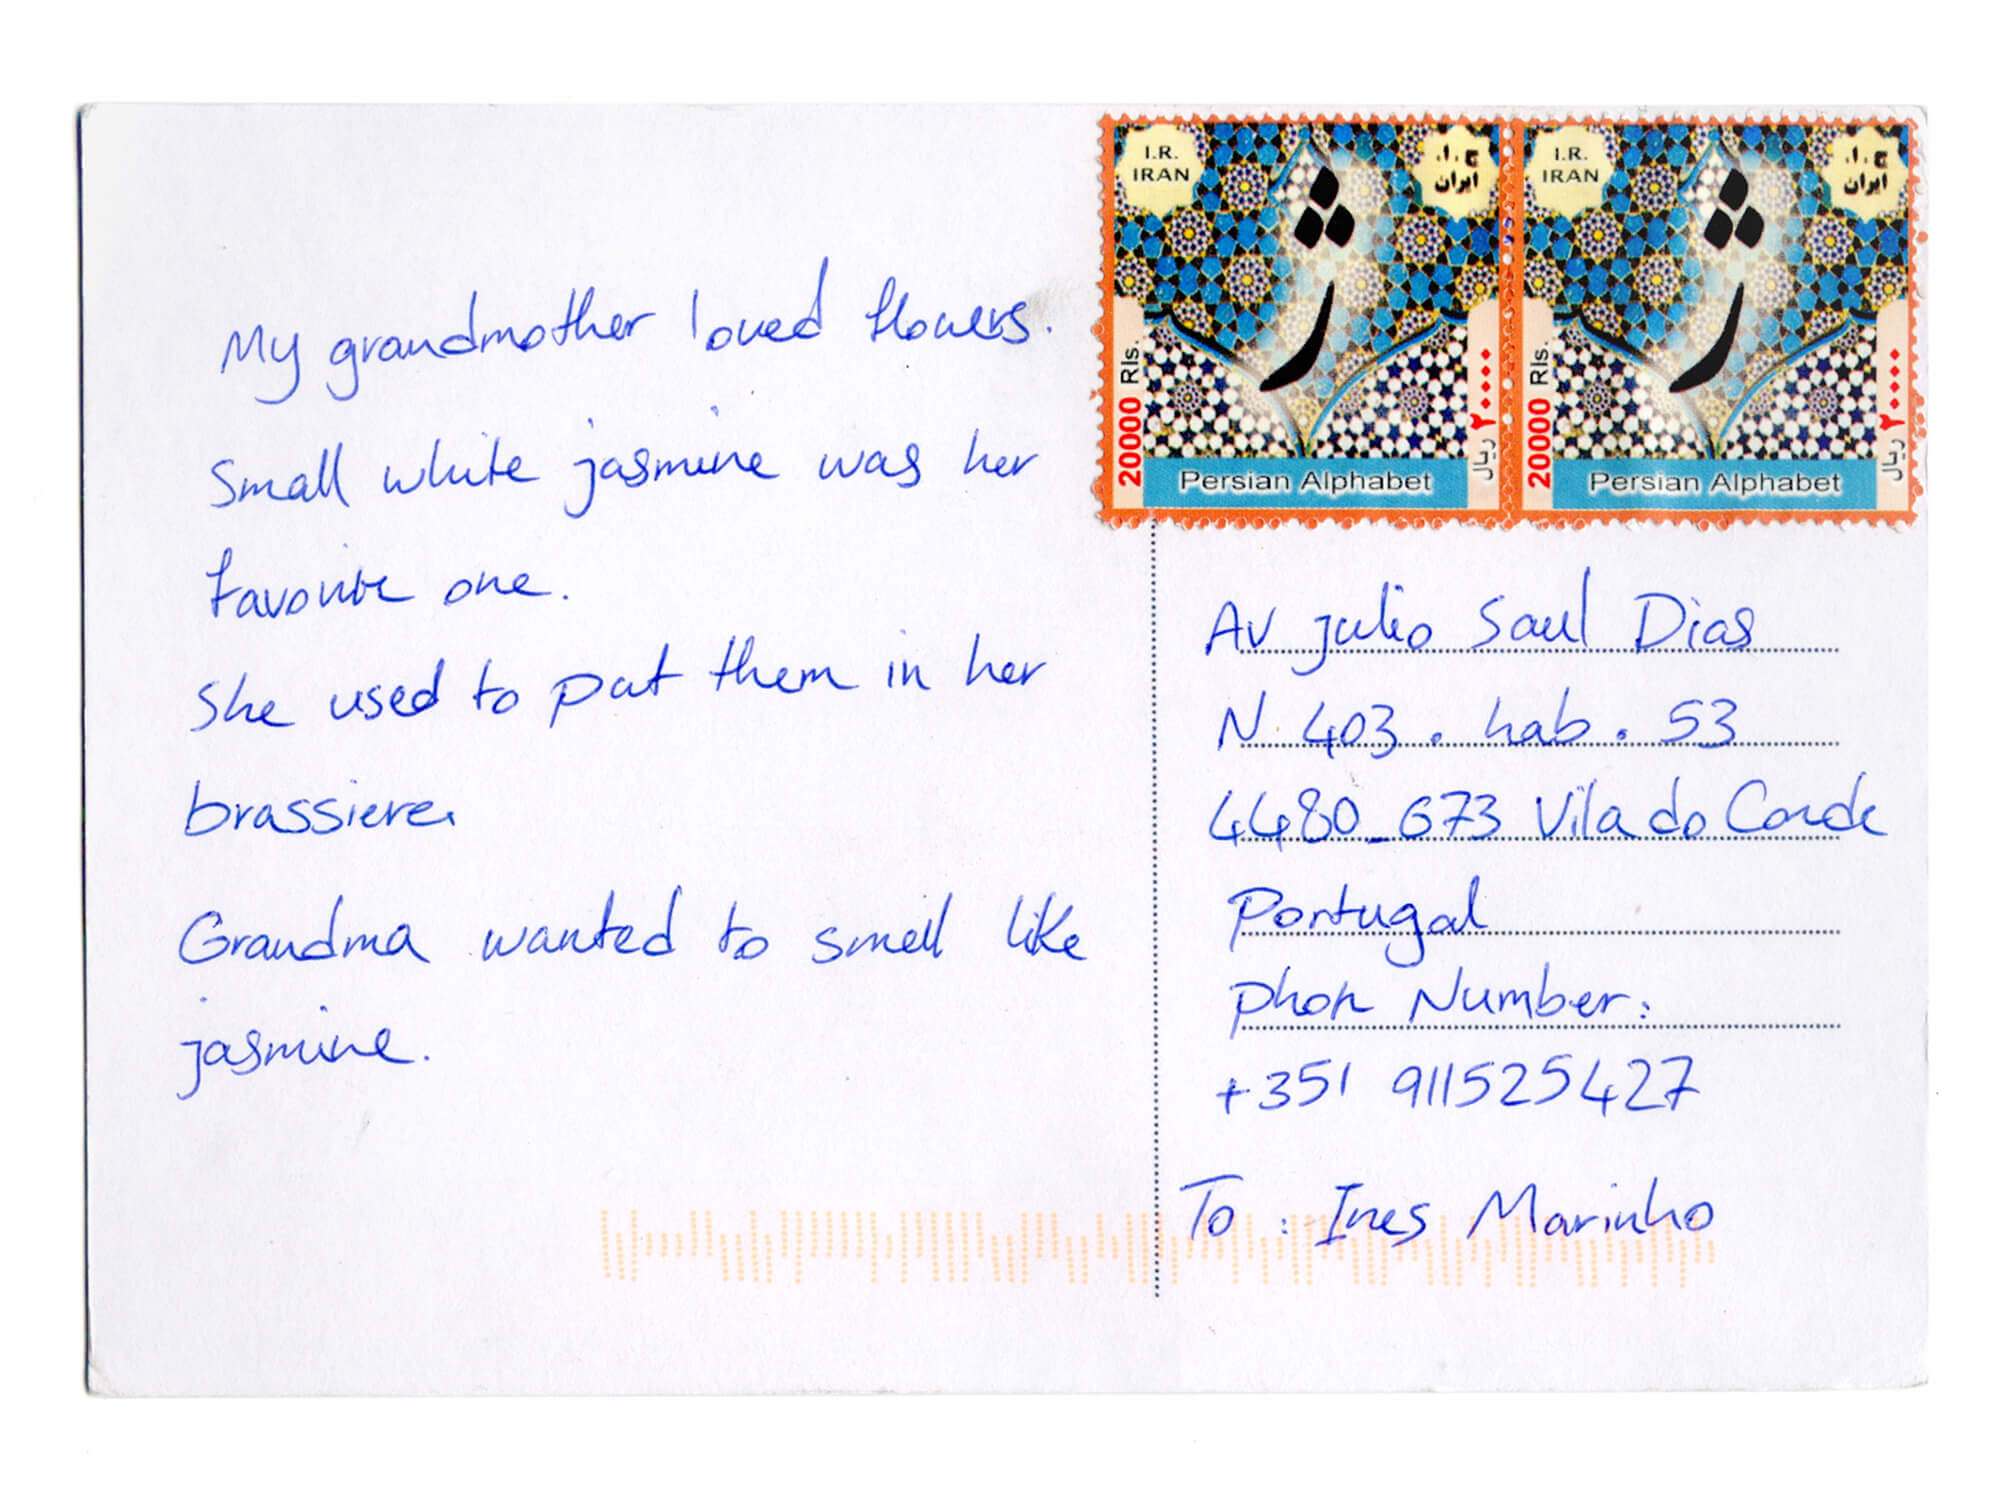 My grandmother loved flowers.
Small white jasmine was her
favorite one.
She used to put them in her
brassiere.
Grandma wanted to smell like
jasmine.
I.R.
IRAN
ج.ا.
ایران
ژ
20000 Rls.
۲۰۰۰۰ ریال
Persian Alphabet
I.R.
IRAN
ج.ا.
ایران
ژ
20000 Rls.
۲۰۰۰۰ ریال
Persian Alphabet
Av julio Saul Dias
N 403 . hab . 53
4480_673 Vila do Conde
Portugal
Phon Number:
+351 911525427
To : Ines Marinho